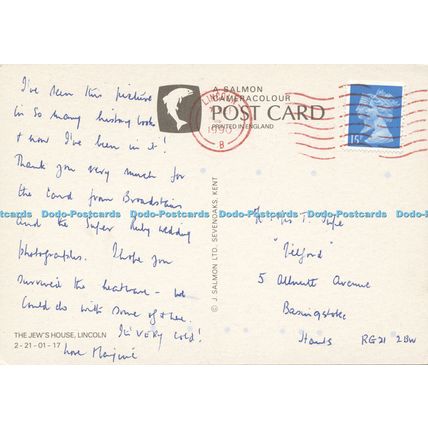 I've seen this picture
in so many history books
& now I've been in it!
Thank you very much for
the card from Broadstairs
and the super Ruby wedding
photographs. I hope you
survived the heatwave - we
could do with some of it here.
It's VERY cold!
love
THE JEW'S HOUSE, LINCOLN
2-21-01-17
A SALMON
CAMERACOLOUR
POST CARD
PRINTED IN ENGLAND
LINCOLN
1990
B
15P
© J SALMON LTD. SEVENOAKS, KENT
Dodo-Postcards Dodo-Postcards Dodo-Postcards Dodo-Postcards Dodo-Postcards
"Telford"
5 Avenue
Basingstoke
Hants RG21 2BW